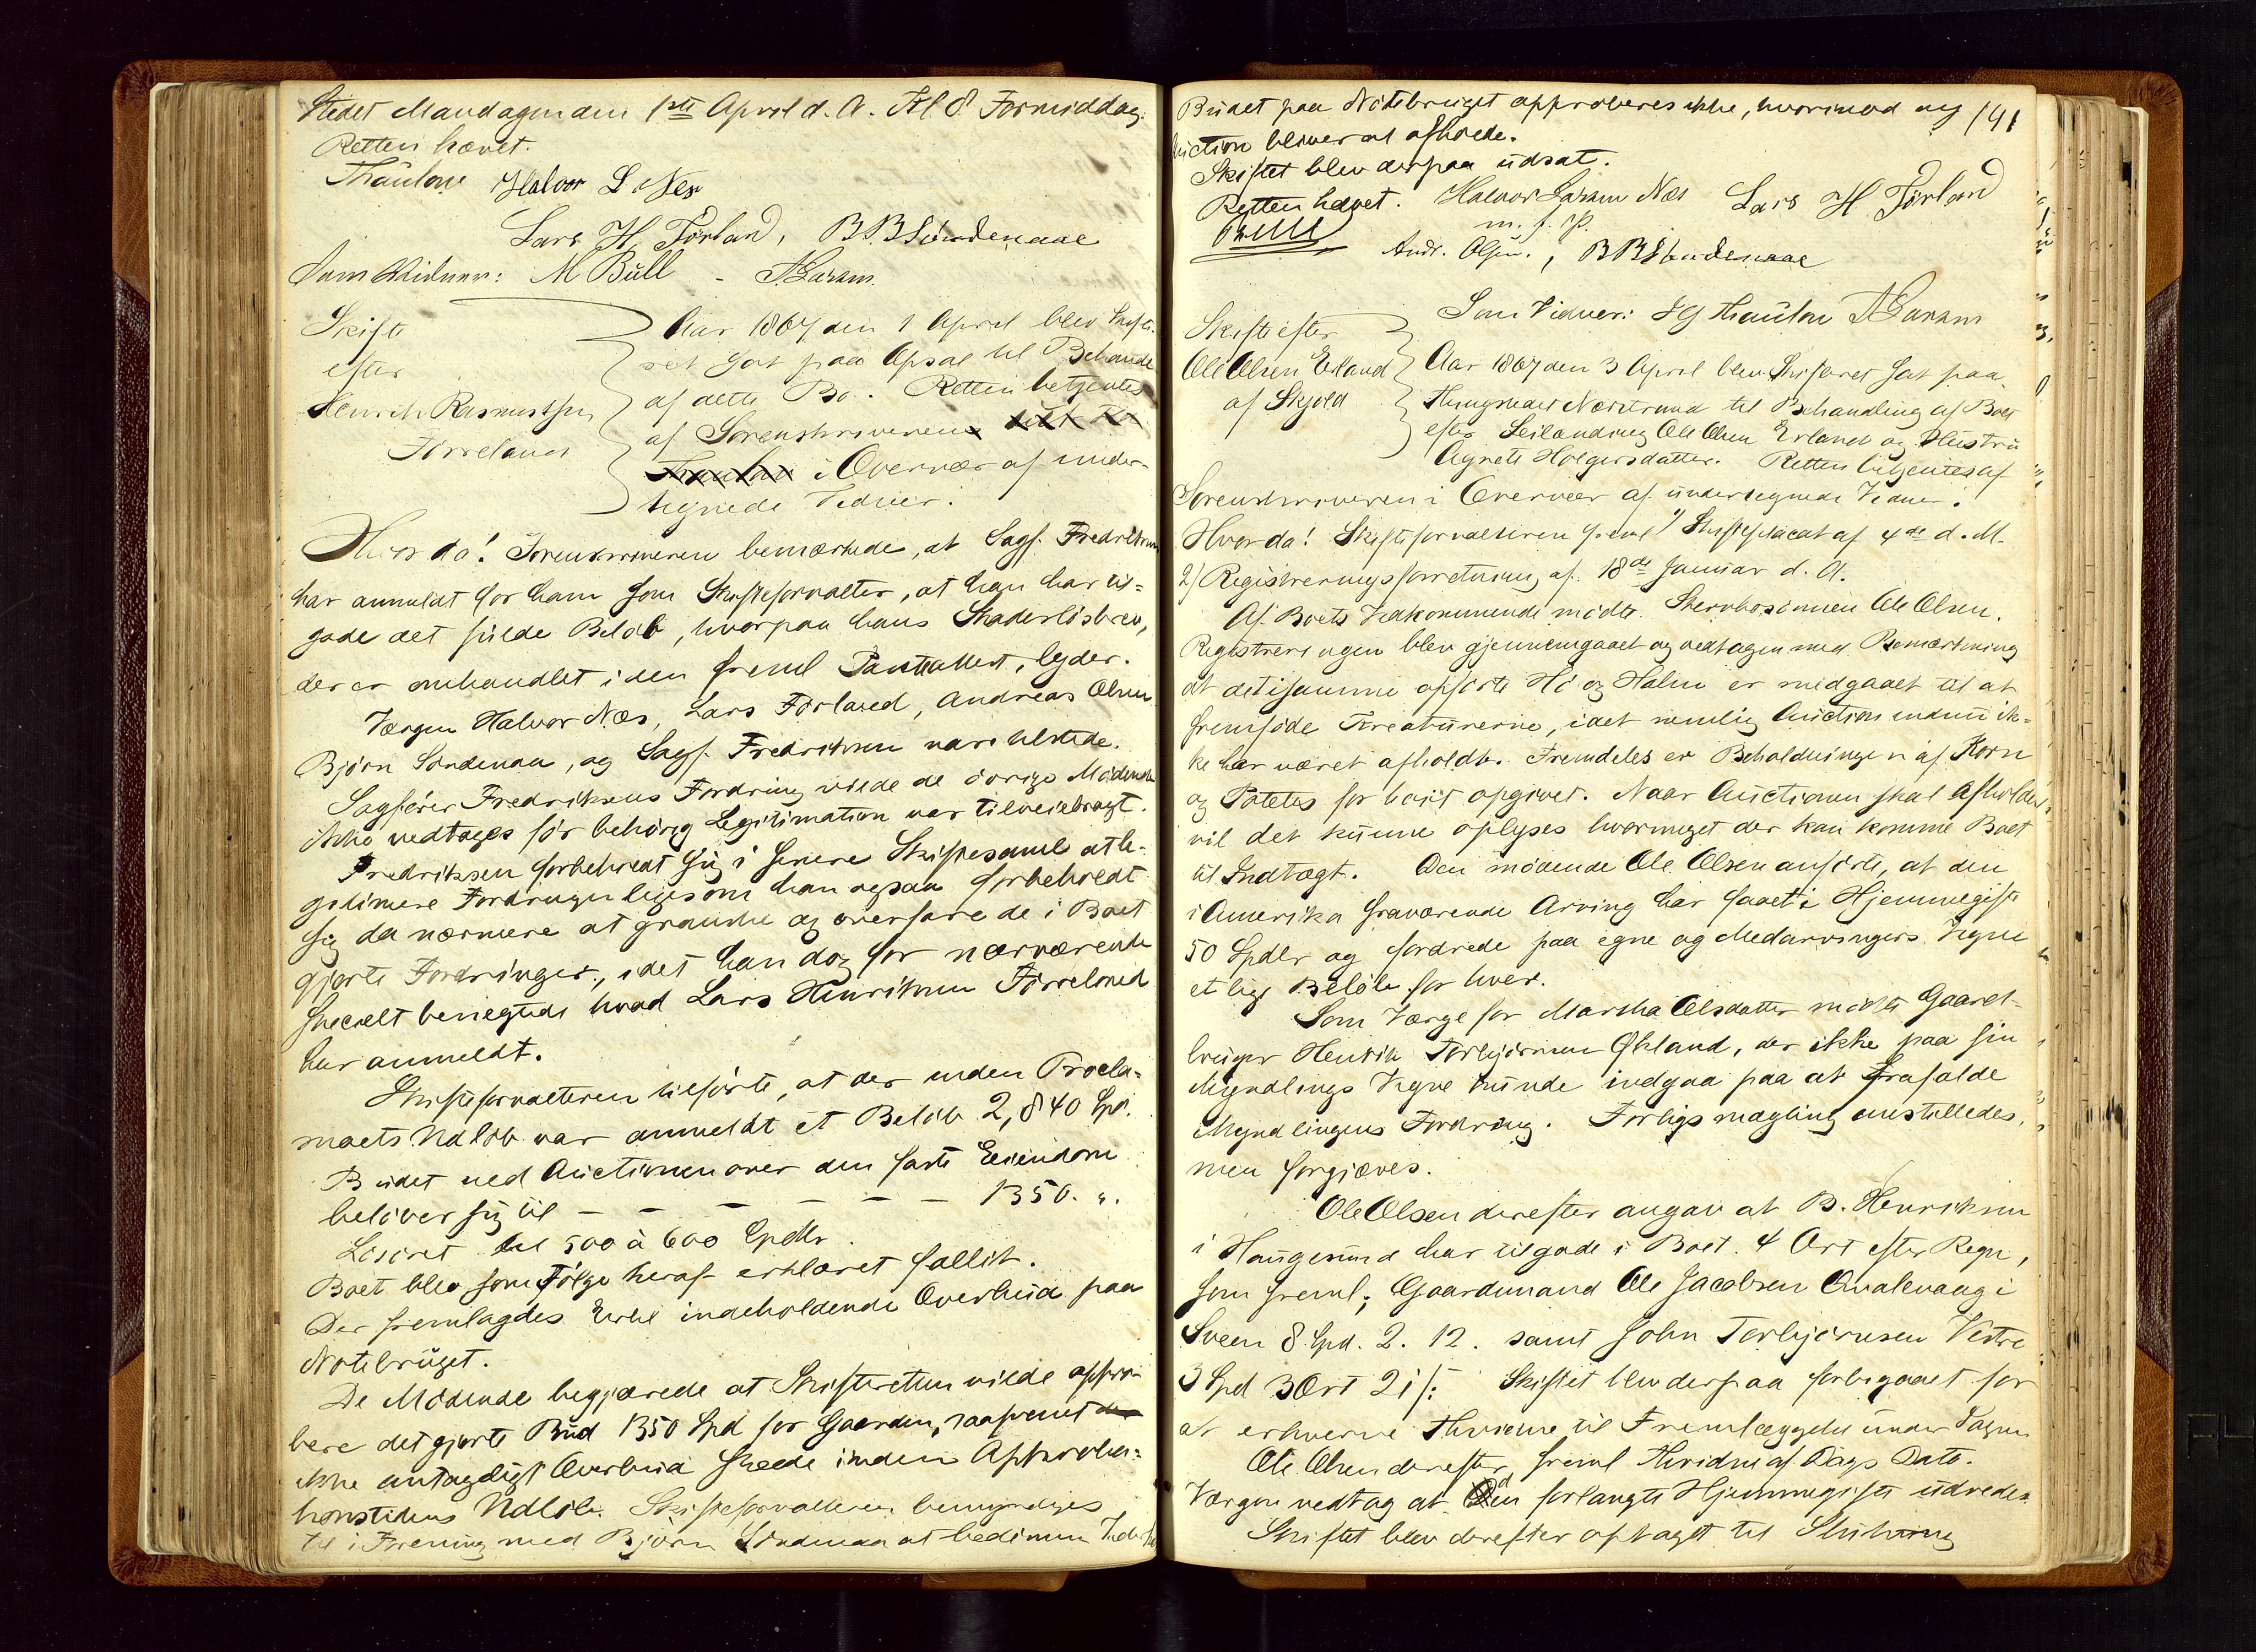 Stedet Mandagen den 1ste April d. A. Kl 8 Formiddag.
Retten hævet.
Thaulow Halvor L Nes
Lars H. Førland, BBSøndenaae
Som Vidner: M Bull - Larsen
Skift
efter
Henrich Rasmussen
Førreland
Aar 1867 den 1 April blev Skifte-
ret sat paa Opsal til Behandl
af dette Bo. Retten betjentes
af Sorenskriveren
i Overvær af under-
tegnede Vidner.
Hvor da! Sorenskriveren bemærkede, at Sagf. Fredriksen
har anmeldt for ham som Skifteforvalter, at han har til-
gode det fulde Beløb, hvorpaa hans Skadesløsbrev,
der er omhandlet i den freml Panteattest, lyder.
Værgen Halvor Næs, Lars Førland, Andreas Olsen
Bjørn Søndenaa, og Sagf. Fredriksen vare tilstede.
Sagfører Fredriksens Fordring vilde de øvrige Mødende
ikke vedtages før behørig Legitimation var tilveiebragt.
Fredriksen forbeholdt sig i senere Skiftesaml at le-
gitimere Fordringen ligesom han ogsaa forbeholdt
sig da nærmere at granske og overfare de i Boet
gjorte Fordringer, idet han dog for nærværende
specielt benegtede hvad Lars Henriksen Førreland
har anmeldt.
Skifteforvalteren tilførte, at der inden Procla-
maets Udløb var anmeldt et Beløb 2,840 Spd.
Budet ved Auctionen over den faste Eiendom
beløber sig til - - - - - - 1350. „.
Løsøret til 500 à 600 Spdlr.
Boet blev som Følge heraf erklæret fallit.
Der fremlagdes Erkl indeholdende Overbud paa
Notebruget.
De Mødende begjærede at Skifteretten vilde appro-
bere det gjorte Bud 1350 Spd for Gaarden, saafremt
ikke antageligt Overbud skede inden Approba-
tionstidens Udløb. Skifteforvalteren bemyndiges
til i Forening med Bjørn Søndenaa at bedømme
191
Budet paa Nodebruget approberes ikke, hvorimod ny
Auction bliver at afholde.
Skiftet blev derpaa udsat.
Retten hævet. Halvor Larsen Næs Lars H. Førland
m. f. P.
Andr. Olsen., BBSøndenaae
Som Vidner: Thaulow Larsen
Skifte efter
Ole Olsen Erland
af Skjold
Aar 1867 den 3 April blev Skifteret sat paa
Thingstedet Nærstrand til Behandling af Boet
efter Leilænding Ole Olsen Erland og Hustru
Agnete Holgersdatter. Retten betjentes af
Sorenskriveren i Overvær af undertegnede Vidner.
Hvor da! Skifteforvalteren freml 1) Skifteplacat af 4de d. M.
2) Registreringsforretning af 18de Januar d. A.
Af Boets Vedkommende mødte Stervbosønnen Ole Olsen.
Registreringen blev gjennemgaaet og vedtagen med Bemærkning
at det i samme opførte Hø og Halm er medgaaet til at
fremføde Kreaturerne, idet nemlig Auction endnu ik-
ke har været afholdt. Fremdeles er Beholdningen af Korn
og Potetes for høit opgivet. Naar Auctionen skal afholdes
vil det kunne oplyses hvormeget der kan komme Boet
til Indtægt. Den mødende Ole Olsen anførte, at den
i Amerika fraværende Arving har faaet i Hjemmegift
50 Spdlr og fordrede paa egne og Medarvingers Vegne
et lige Beløb for hver.
Som Værge for Martha Olsdatter mødte Gaard-
bruger Henrik Torbjørnsen Økland, der ikke paa sin
Myndlings Vegne kunde indgaa paa at frafalde
Myndlingens Fordring. Forligsmægling anstilledes,
men forgjæves.
Ole Olsen derefter angav at B. Henriksen
i Haugesund har tilgode i Boet 4 Ort efter Regn,
som freml; Gaardmand Ole Jacobsen Qvalevaag i
Sveen 8 Spd. 2. 12. samt John Torbjørnsen Vestre
3 Spd 3 Ort 21 ſ: Skiftet blev derpaa forbigaaet for
at erhverve til Fremlæggelse under Sagen
Ole Olsen derefter freml af Dags Dato.
Værgen vedtog at den forlangte Hjemmegift udredes.
Skiftet blev derefter optaget til Slutning